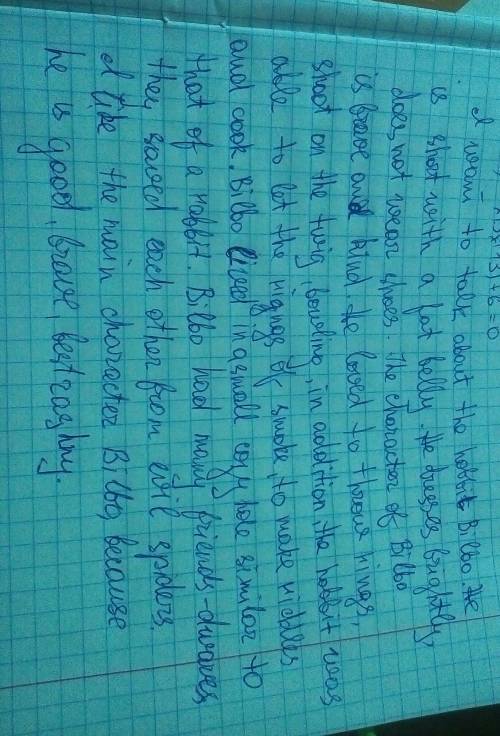 I want to talk about the hobbit Bilbo. He
is short with a fat belly. He dresses brightly,
does not wear shoes. The character of Bilbo
is brave and kind. He loved to throw rings,
shoot on the twig, bowling, in addition, the hobbit was
able to let the rigngs of smoke, to make riddles
and cook. Bilbo lived in a small cozy hole similar to
that of a rabbit. Bilbo had many friends-dwarves,
they saved each other from evil spiders.
I like the main character Bilbo, because
he is good, brave, bestrashny.